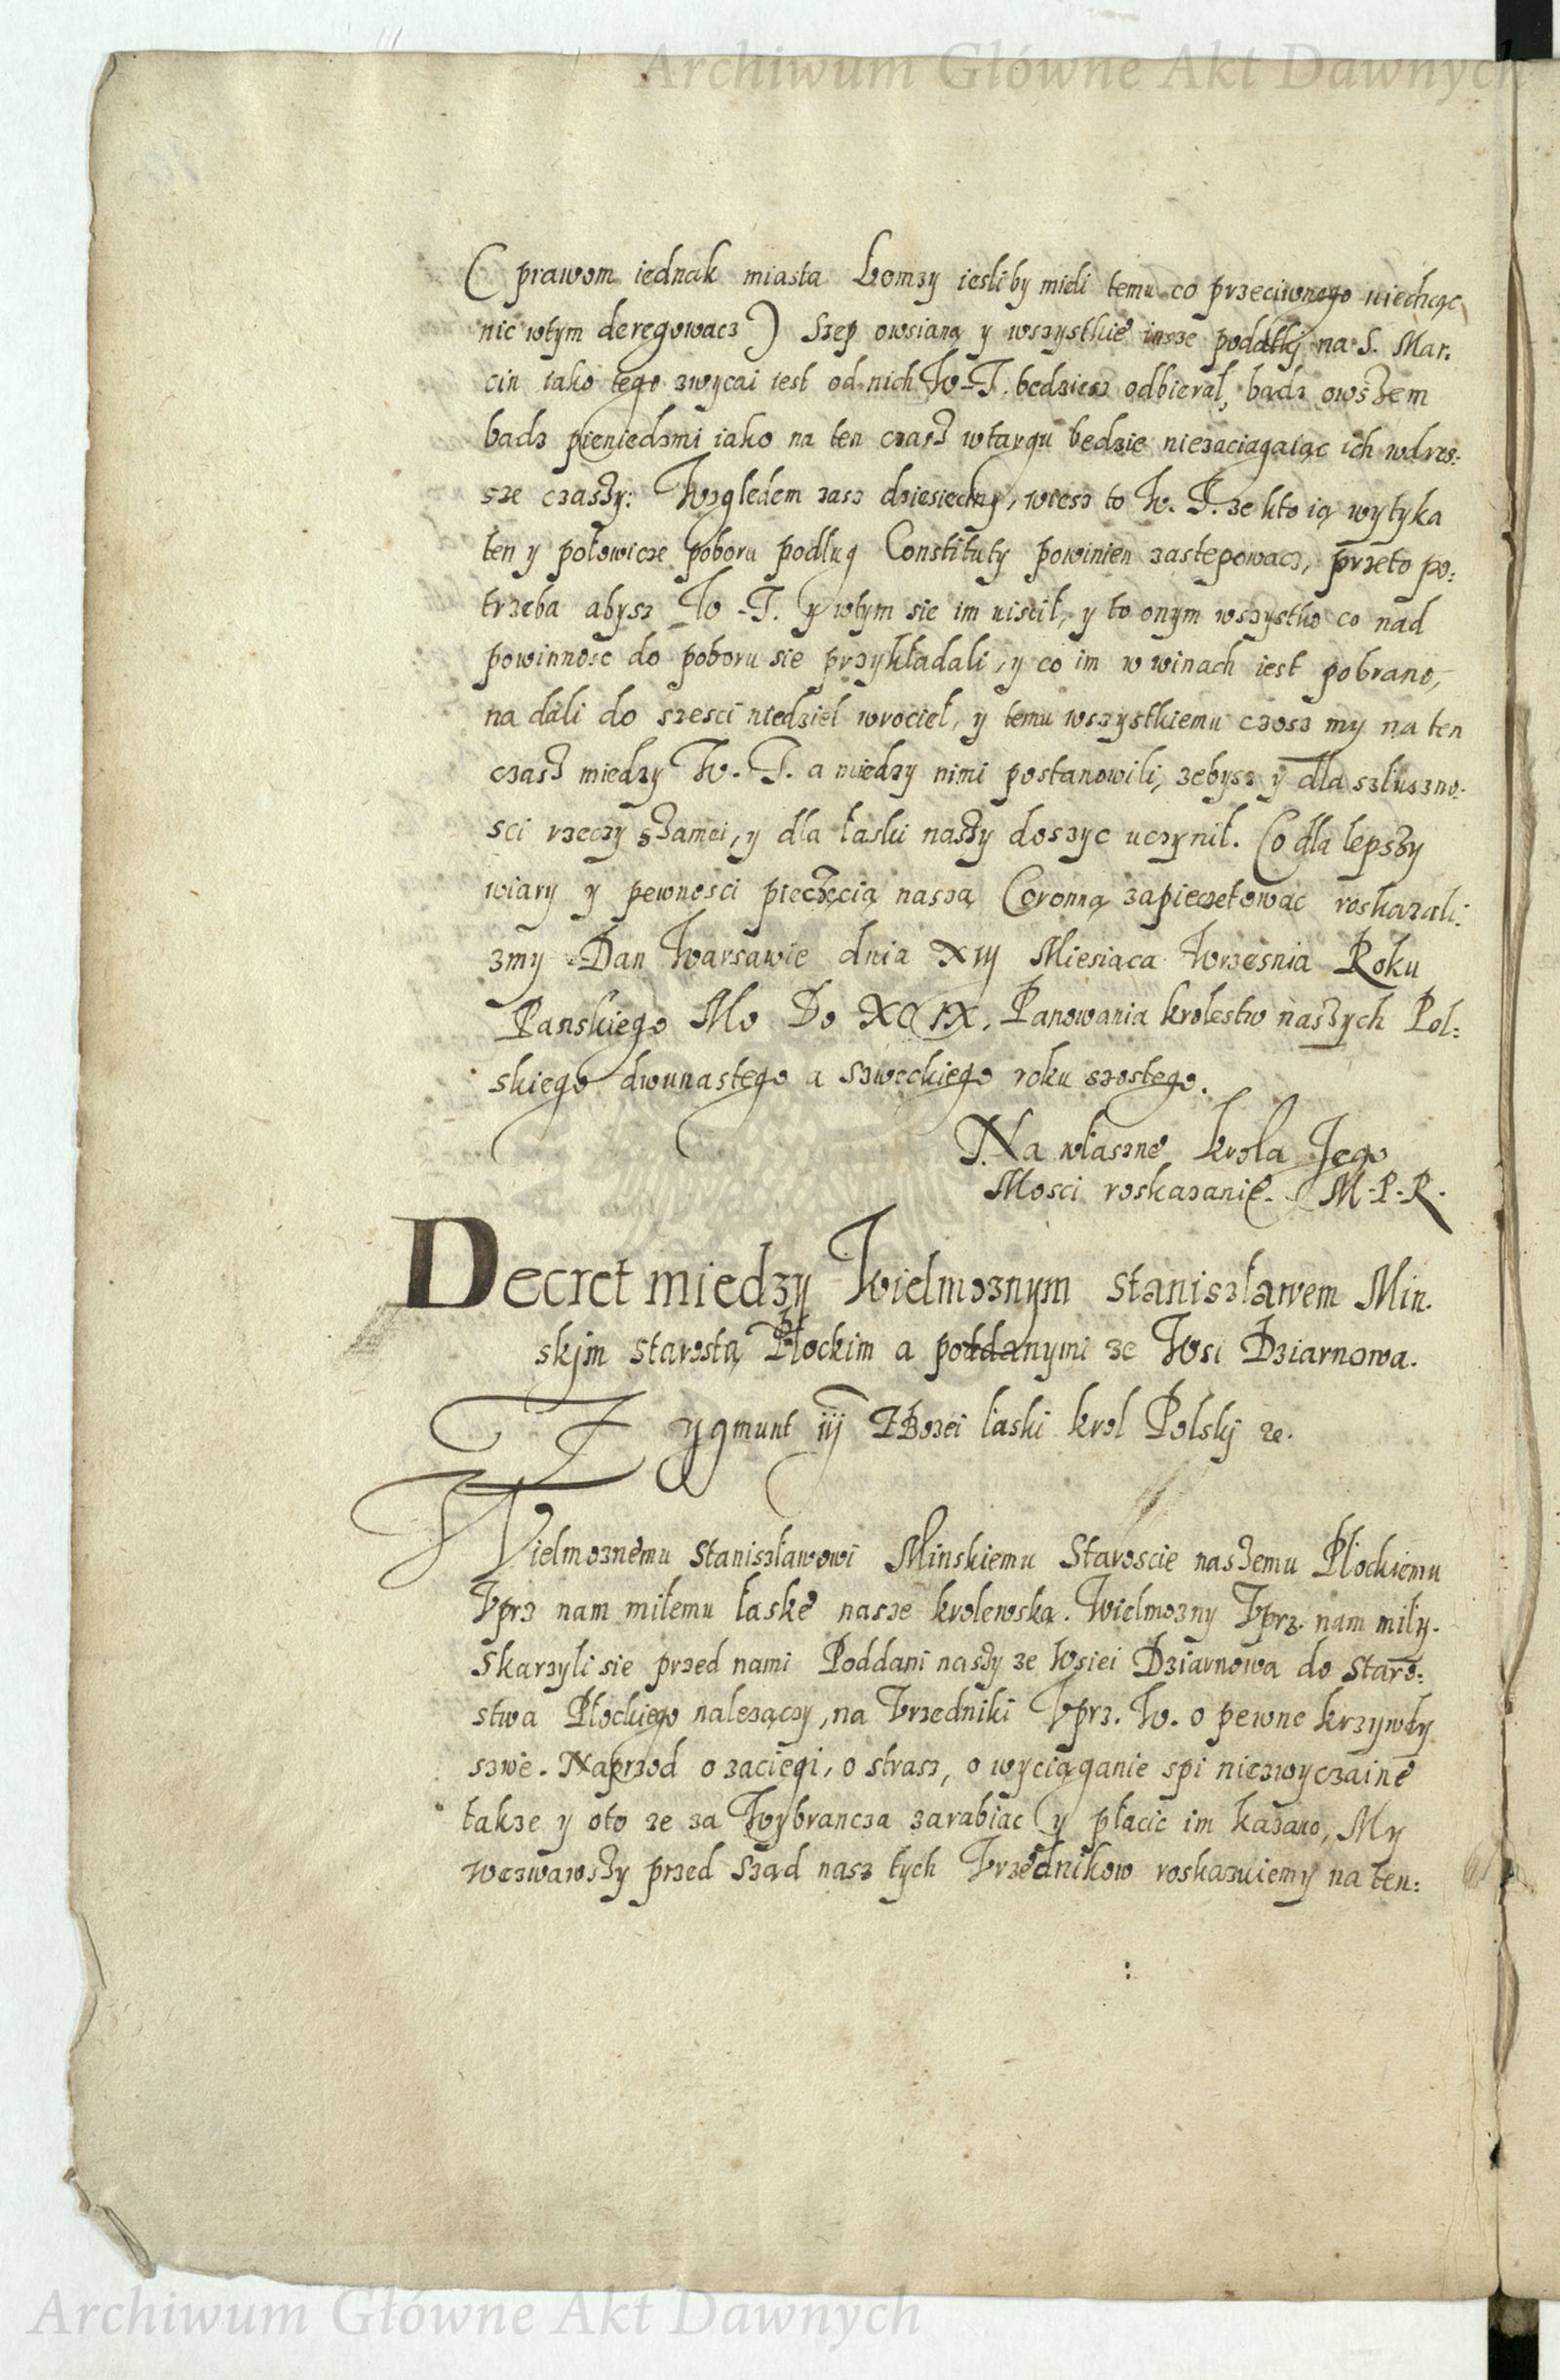 Archiwum Główne Akt Dawnych
( prawom iednak miasta Lomzy iesliby mieli temu co przeciwnego niechcąc
nic wtym deregowacz ) Szep owsianą y wszystkie insze podatkj na S. Mar:
cin iako tego zwycai iest od nich W. T. bedziesz odbierał, badz owszem
badz pieniedzmi iako na ten czasz wtargu bedzie niezaciagaiąc ich wdros:
sze czaszy: Wzgledem zasz dziesieciny, wiesz to W. T. ze kto ią wytyka
ten y połowicze poboru podług Constituty powinien zastepowacz, przeto po:
trzeba abysz W. T. y wtym sie im uiscił, y to onym wszystko co nad
powinnosc do poboru sie przykładali, y co im w winach iest pobrano,
na dali do szesci niedziel wrocieł, y temu wszystkiemu czosz my na ten
czasz miedzy W. T. a miedzy nimi postanowili, zebysz y dla szluszno:
sci rzeczy szamei, y dla łaski naszy doszyc uczynił. Co dla lepszy
wiary y pewnosci pieczęcią naszą Coronną zapieczetowac roskazali:
zmy Dan Warsawie dnia XIIJ Miesiąca Wrzesnia Roku
Panskiego Mo Do XCIX, Panowania krolestw naszych Pol:
skiego dwunastego a szweckiego roku szostego.
Na własznė krola Jego
Mosci roskazanie. M.P.R.
Decret miedzy Wielmoznym Staniszławem Min.
skjm Starostą Płockim a poddanymi ze Wsi Dziarnowa.
Zygmunt iij Z Bozei łaski krol Polskj ꝛc.
Wielmoznemu Staniszławowi Minskiemu Staroscie naszemu Płockiemu
Vprz nam miłemu łaskė nasze krolewska. Wielmozny Vprz. nam miły.
Skarzyli sie przed nami Poddani naszy ze Wsiei Dziarnowa do Staro:
stwa Płockiego nalezączy, na Vrzedniki Vprz. W. o pewne krzywdy
szwe. Naprzod o zaciegi, o strasz, o wyciąganie spi niezwyczainė
takze y oto ze za Wybrancza zarabiac y płacic im kazano, My
wezwawszy przed Sząd nasz tych Vrzednikow roskazuiemy na ten:
Archiwum Główne Akt Dawnych